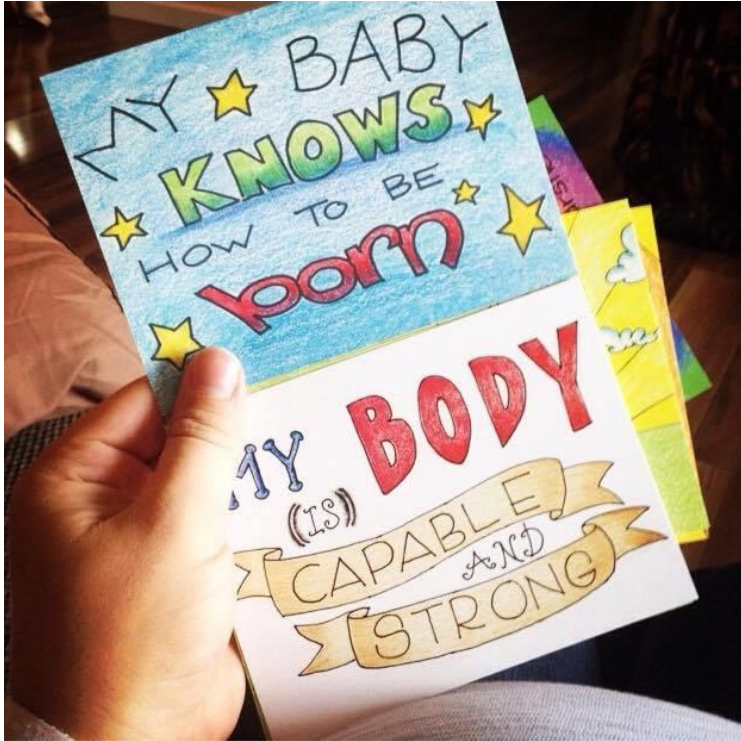 MY BABY
KNOWS
HOW TO BE
born
MY BODY
(IS)
CAPABLE
AND
STRONG